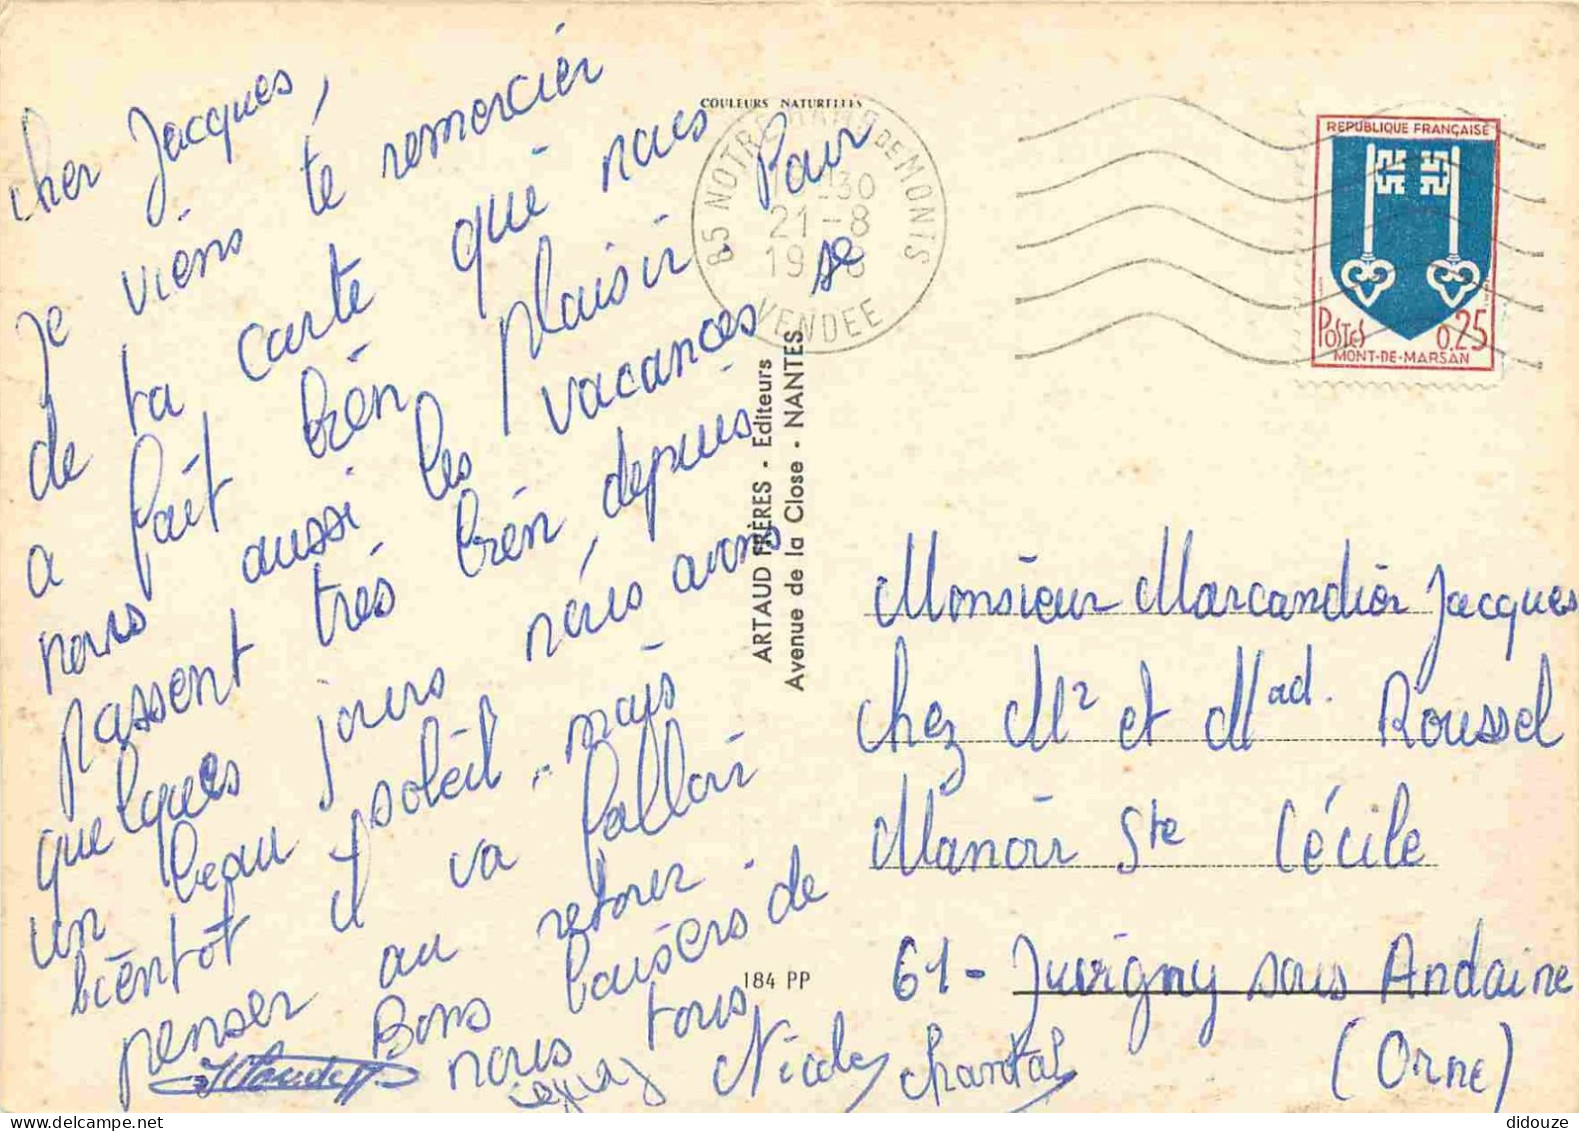 Cher Jacques,
Je viens te remercier
de ta carte qui nous
a fait bien plaisir Pour
nous aussi les vacances se
passent très bien, depuis
quelques jours nous avons
un beau soleil, mais
bientôt il va falloir
penser au retour.
Bons baisers de
nous tous
Nicole Chantal
COULEURS NATURELLES
85 NOTRE DAME DE MONTS
30
21-8
VENDEE
REPUBLIQUE FRANÇAISE
POSTES 0,25
MONT-DE-MARSAN
ARTAUD FRÈRES - Editeurs
Avenue de la Close - NANTES
184 PP
Monsieur Marcandier Jacques
chez Mr et Mad. Roussel
Manoir Ste Cécile
61 - Juvigny sous Andaine
(Orne)
didouze